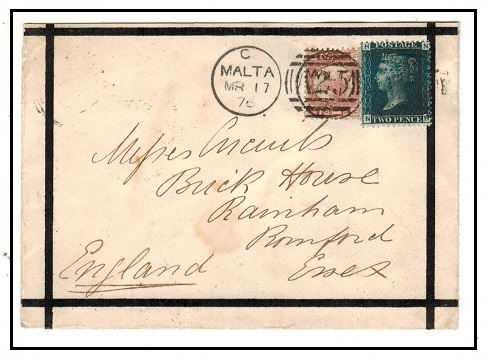 C
MALTA
MR 17
76
A 25
POSTAGE
TWO PENCE
Brick House
Rainham
Romford
Essex
England